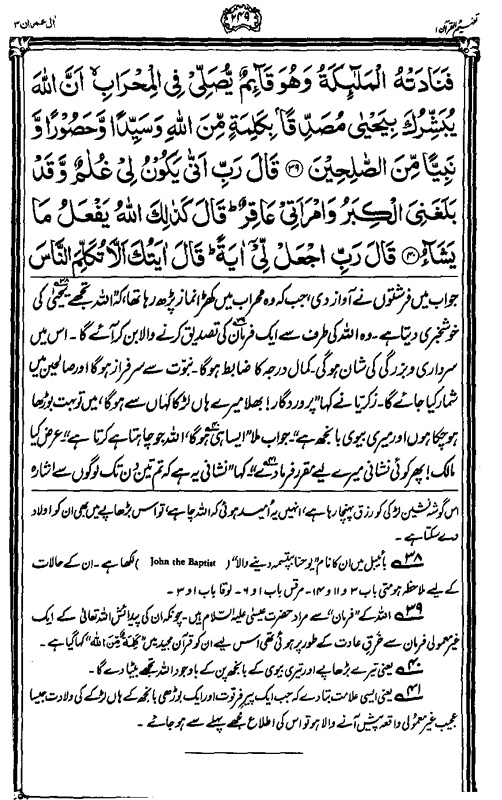 تفہیم القرآن ۱
۲۴۹
اٰل عمران ۳
فَنَادَتْهُ الْمَلٰٓئِكَةُ وَهُوَ قَآئِمٌ يُّصَلِّىْ فِى الْمِحْرَابِ ۙ اَنَّ اللّٰهَ
يُبَشِّرُكَ بِيَحْيٰى مُصَدِّقًاۢ بِكَلِمَةٍ مِّنَ اللّٰهِ وَسَيِّدًا وَّحَصُوْرًا وَّ
نَبِيًّا مِّنَ الصّٰلِحِيْنَ ﴿۳۹﴾ قَالَ رَبِّ اَنّٰى يَكُوْنُ لِىْ غُلٰمٌ وَّقَدْ
بَلَغَنِىَ الْكِبَرُ وَامْرَاَتِىْ عَاقِرٌ ؕ قَالَ كَذٰلِكَ اللّٰهُ يَفْعَلُ مَا
يَشَآءُ ﴿۴۰﴾ قَالَ رَبِّ اجْعَلْ لِّىْٓ اٰيَةً ؕ قَالَ اٰيَتُكَ اَلَّا تُكَلِّمَ النَّاسَ
جواب میں فرشتوں نے آواز دی، جب کہ وہ محراب میں کھڑا نماز پڑھ رہا تھا، کہ "اللہ تجھے یحییٰ۳۸ کی
خوشخبری دیتا ہے۔ وہ اللہ کی طرف سے ایک فرمان۳۹ کی تصدیق کرنے والا بن کر آئے گا۔ اس میں
سرداری و بزرگی کی شان ہوگی۔ کمال درجہ کا ضابط ہوگا۔ نبوت سے سرفراز ہوگا اور صالحین میں
شمار کیا جائے گا۔ زکریا نے کہا "پروردگار! بھلا میرے ہاں لڑکا کہاں سے ہوگا، میں تو بہت بوڑھا
ہو چکا ہوں اور میری بیوی بانجھ ہے"۔ جواب ملا "ایسا ہی ہوگا۴۰، اللہ جو چاہتا ہے کرتا ہے"۔ عرض کیا
مالک! پھر کوئی نشانی میرے لیے مقرر فرما دے۴۱"۔ کہا "نشانی یہ ہے کہ تم تین دن تک لوگوں سے اشارہ
اس گوشہ نشین لڑکی کو رزق پہنچا رہا ہے، انہیں یہ امید ہوئی کہ اللہ چاہے، تو اس بڑھاپے میں بھی ان کو اولاد
دے سکتا ہے۔
۳۸ بائیبل میں ان کا نام "یوحنا بپتسمہ دینے والا" (John the Baptist) لکھا ہے۔ ان کے حالات
کے لیے ملاحظہ ہو متی باب ۳ و ۱۱ و ۱۴۔ مرقس باب ۱ و ۶۔ لوقا باب ۱ و ۳۔
۳۹ اللہ کے "فرمان" سے مراد حضرت عیسیٰ علیہ السلام ہیں۔ چونکہ ان کی پیدائش اللہ تعالیٰ کے ایک
غیر معمولی فرمان سے خرق عادت کے طور پر ہوئی تھی اس لیے ان کو قرآن مجید میں "كَلِمَةٌ مِّنَ اللّٰه" کہا گیا ہے۔
۴۰ یعنی تیرے بڑھاپے اور تیری بیوی کے بانجھ پن کے باوجود اللہ تجھے بیٹا دے گا۔
۴۱ یعنی ایسی علامت بتا دے کہ جب ایک پیر فرتوت اور ایک بوڑھی بانجھ کے ہاں لڑکے کی ولادت جیسا
عجیب غیر معمولی واقعہ پیش آنے والا ہو تو اس کی اطلاع مجھے پہلے سے ہو جائے۔